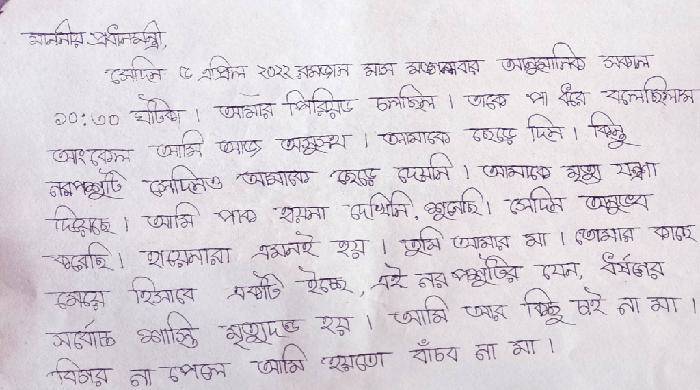 মাননীয় প্রধানমন্ত্রী,
সেদিন ৫ এপ্রিল ২০২২ রমজান মাস মঙ্গলবার আনুমানিক সকাল
১০:৩০ ঘটিকা। আমার পিরিয়ড চলছিল। তাকে পা ধরে বলেছিলাম
আংকেল আমি আজ অসুস্থ। আমাকে ছেড়ে দিন। কিন্তু
নরপশুটি সেদিনও আমাকে ছেড়ে দেয়নি। আমাকে মৃত্যু যন্ত্রণা
দিয়েছে। আমি পাক হায়না দেখিনি, শুনেছি। সেদিন অনুভব
করেছি। হায়েনারা এমনই হয়। তুমি আমার মা। তোমার কাছে
মেয়ে হিসাবে একটাই ইচ্ছে, এই নর পশুটির যেন, ধর্ষনের
সর্বোচ্চ শাস্তি মৃত্যুদন্ড হয়। আমি আর কিছু চাই না মা।
বিচার না পেলে আমি হয়তো বাঁচব না মা।